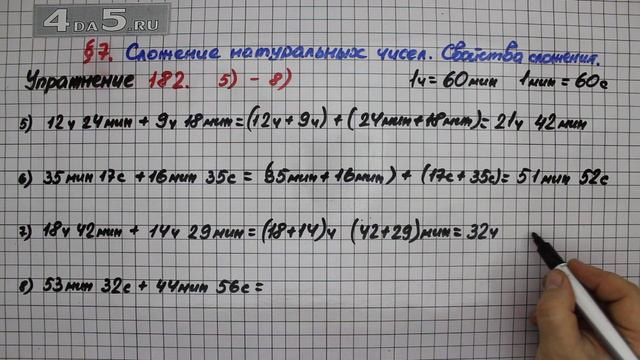 4DA5.RU
§7. Сложение натуральных чисел. Свойства сложения.
Упражнение 182. 5) - 8) 1ч = 60мин 1мин = 60с
5) 12ч 24мин + 9ч 18мин = (12ч + 9ч) + (24мин + 18мин) = 21ч 42мин
6) 35мин 17с + 16мин 35с = (35мин + 16мин) + (17с + 35с) = 51мин 52с
7) 18ч 42мин + 14ч 29мин = (18 + 14)ч (42 + 29)мин = 32ч
8) 53мин 32с + 44мин 56с =